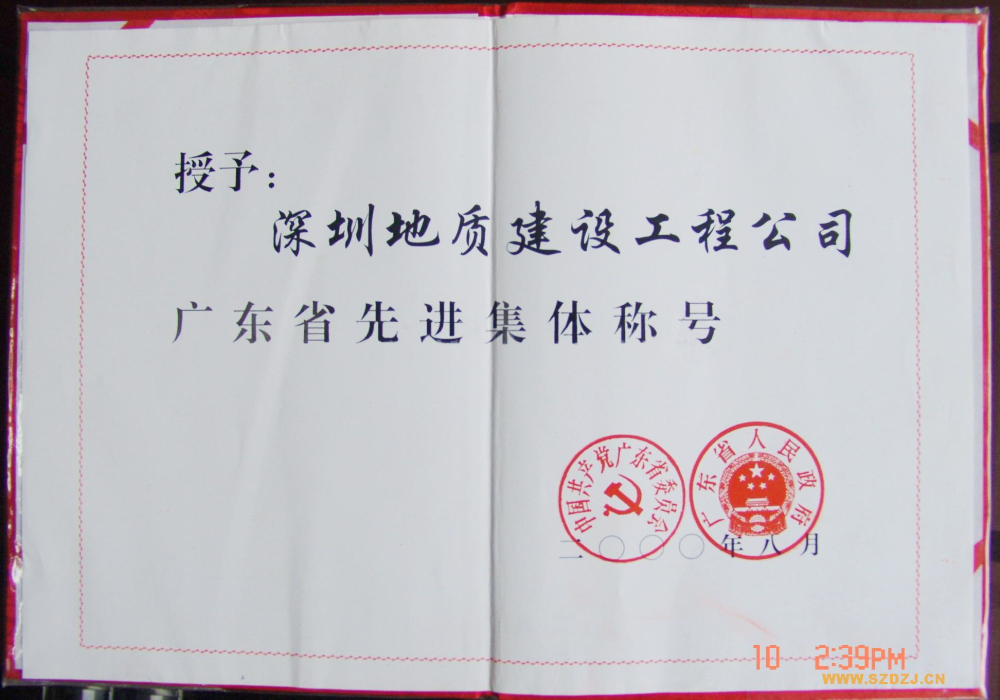 授予：
深圳地质建设工程公司
广东省先进集体称号
中国共产党广东省委员会
广东省人民政府
二〇〇〇年八月
10 2:39PM
WWW.SZDZJ.CN